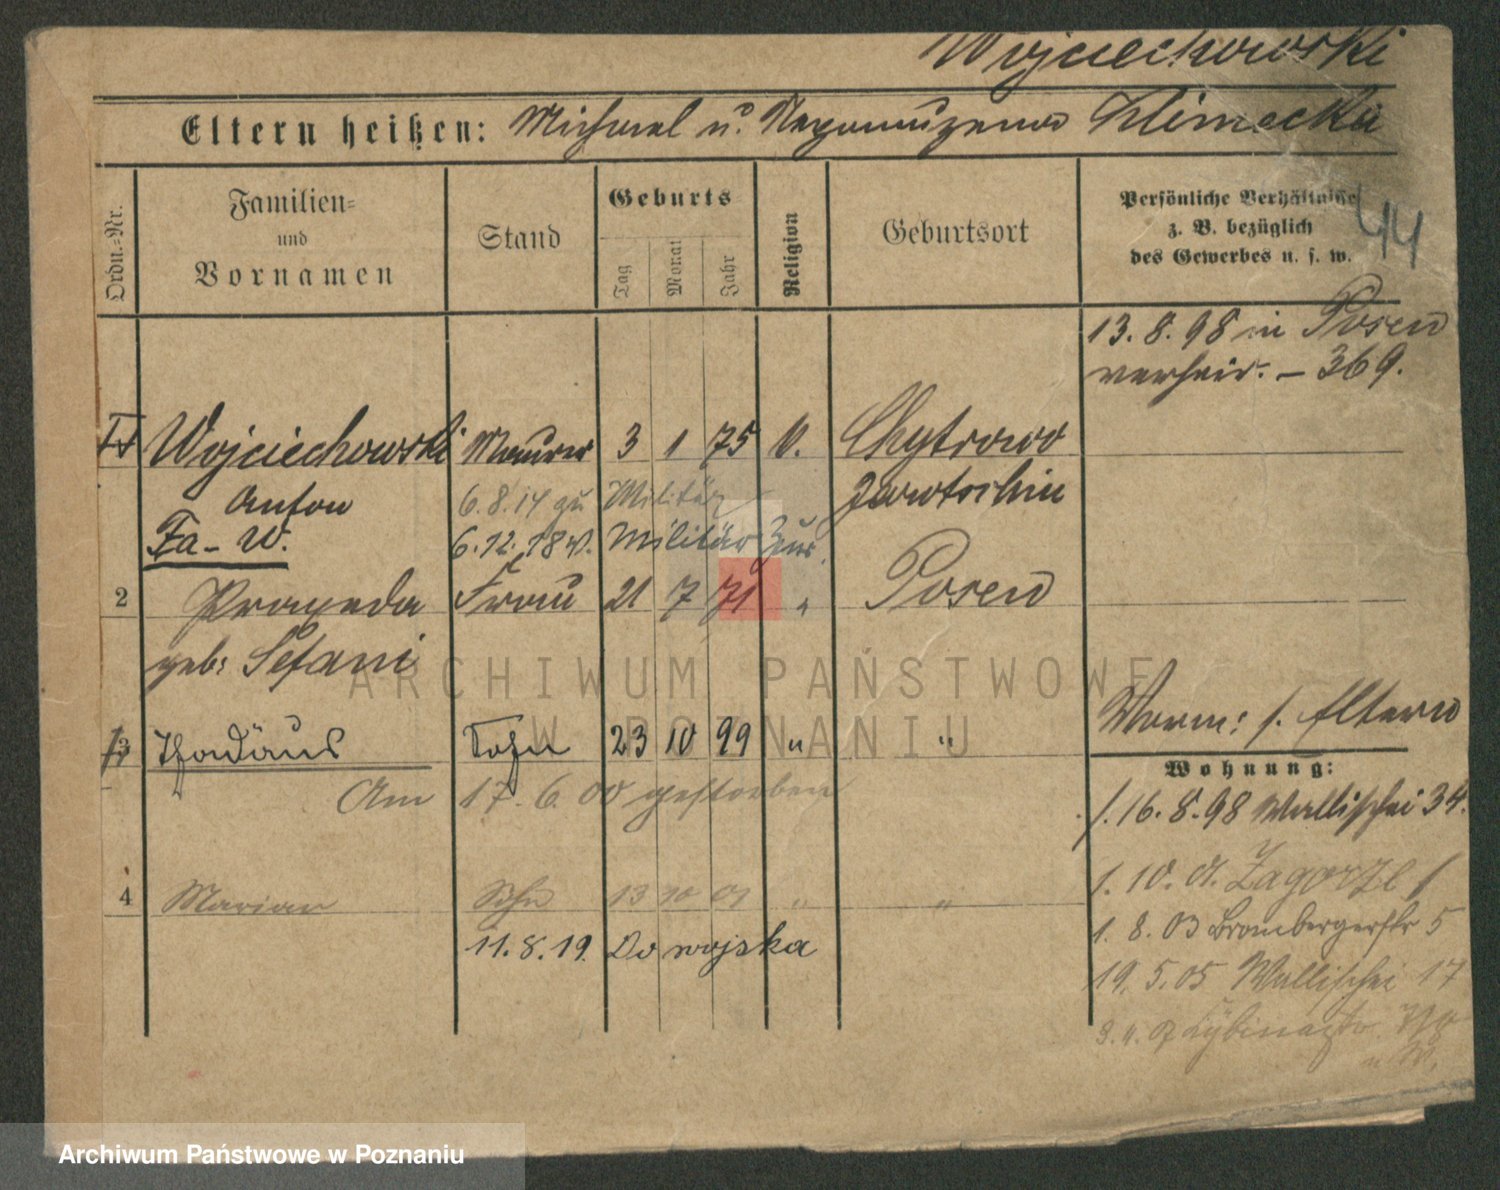 Wojciechowski
Eltern heißen: Michael u. Nepomuzena Klimecka
Ordn.=Nr.
Familien=
und
Vornamen
Stand
Geburts
Tag
Monat
Jahr
Religion
Geburtsort
Persönliche Verhältnisse
z. B. bezüglich
des Gewerbes u. s. w.
44
13. 8. 98 in Posen
verheir. – 369.
Wojciechowski Maurer 3 1 75 k. Chytrowo
Anton 6. 8. 14 zu Militär Jarotschin
Fa – W. 6. 12. 18 v. Militär Zur.
2 Praxeda Frau 21 7 71 " Posen
geb: Stefani
Vorm: s. Eltern
3 Thadäus Sohn 23 10 99 " "
Am 17. 6. 00 gestorben
Wohnung:
16. 8. 98 Wallischei 34.
4 Marian Sohn 13 10 01 " "
11. 8. 19. Do wojska
1. 10. 01. Zagorze
1. 8. 03 Brombergerstr 5
19. 5. 05 Wallischei 17
ARCHIWUM PAŃSTWOWE
W POZNANIU
Archiwum Państwowe w Poznaniu